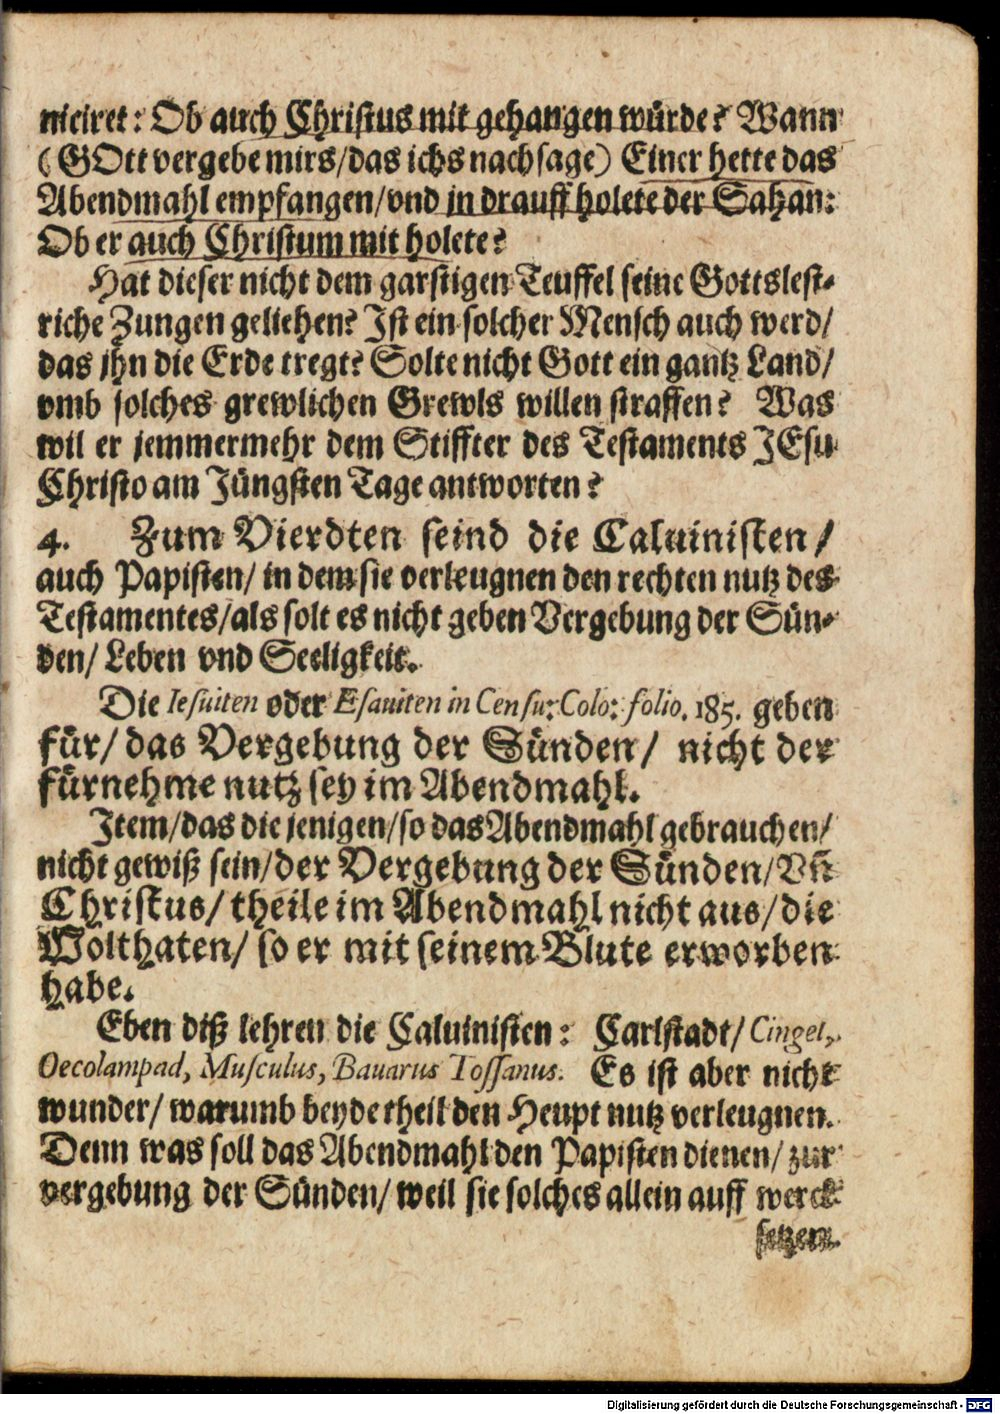 niciret: Ob auch Christus mit gehangen würde? Wann
(GOtt vergebe mirs/das ichs nachsage) Einer hette das
Abendmahl empfangen/vnd in drauff holete der Sahan:
Ob er auch Christum mit holete?
Hat dieser nicht dem garstigen Teuffel seine Gottslest-
riche Zungen geliehen? Ist ein solcher Mensch auch werd/
das jhn die Erde tregt? Solte nicht Gott ein gantz Land/
vmb solches grewlichen Grewls willen straffen? Was
wil er jemmermehr dem Stiffter des Testaments JEsu
Christo am Jüngsten Tage antworten?
4. Zum Vierdten seind die Caluinisten/
auch Papisten/ in dem sie verleugnen den rechten nutz des
Testamentes/als solt es nicht geben Vergebung der Sün-
den/ Leben vnd Seeligkeit.
Die Iesuiten oder Esauiten in Censu: Colo: folio. 185. geben
für/ das Vergebung der Sünden/ nicht der
fürnehme nutz sey im Abendmahl.
Item/das die jenigen/so das Abendmahl gebrauchen/
nicht gewiß sein/der Vergebung der Sünden/Vñ
Christus/ theile im Abendmahl nicht aus/die
Wolthaten/ so er mit seinem Blute erworben
habe.
Eben diß lehren die Caluinisten: Carlstadt/ Cingel,
Oecolampad, Musculus, Bauarus Tossanus. Es ist aber nicht
wunder/ warumb beyde theil den Heupt nutz verleugnen.
Denn was soll das Abendmahl den Papisten dienen/ zur
vergebung der Sünden/ weil sie solches allein auff werck
setzen.
Digitalisierung gefördert durch die Deutsche Forschungsgemeinschaft - DFG